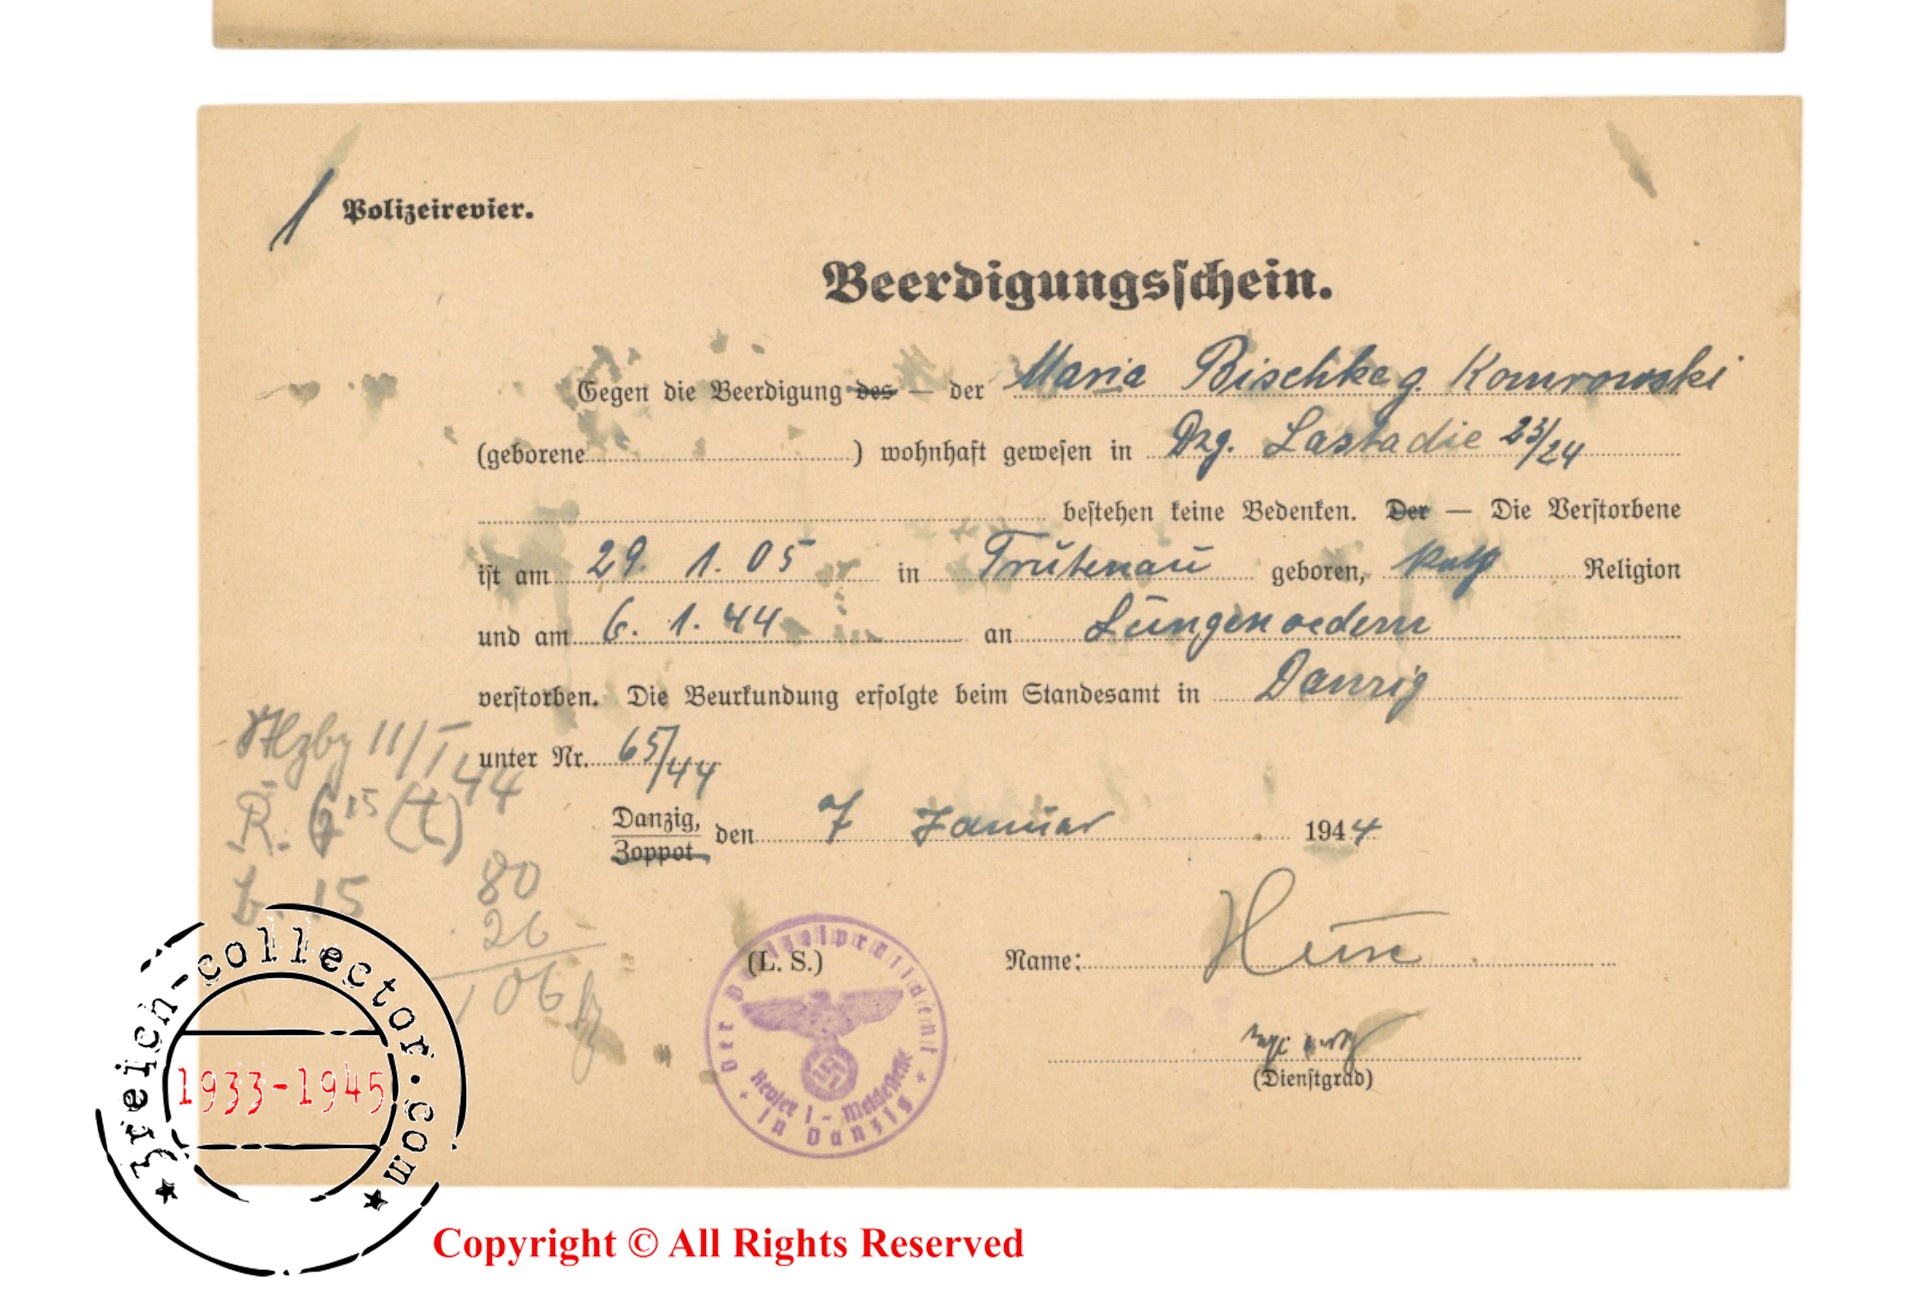 1 Polizeirevier.
Beerdigungsschein.
Gegen die Beerdigung des — der Maria Bischke g. Komrowski
(geborene ) wohnhaft gewesen in Dzg. Lastadie 23/24
bestehen keine Bedenken. Der — Die Verstorbene
ist am 29. 1. 05 in Trutenau geboren, kath Religion
und am 6. 1. 44 an Lungenoedem
verstorben. Die Beurkundung erfolgte beim Standesamt in Danzig
unter Nr. 65/44
11/I 44
R. 6 15 (t)
Danzig, den 7 Januar 1944
Zoppot
b. 15
80
26
106
(L. S.)
Name:
(Dienstgrad)
Der Polizeipräsident
Revier 1 - Meldestelle
in Danzig
3reich-collector.com
1933-1945
Copyright © All Rights Reserved